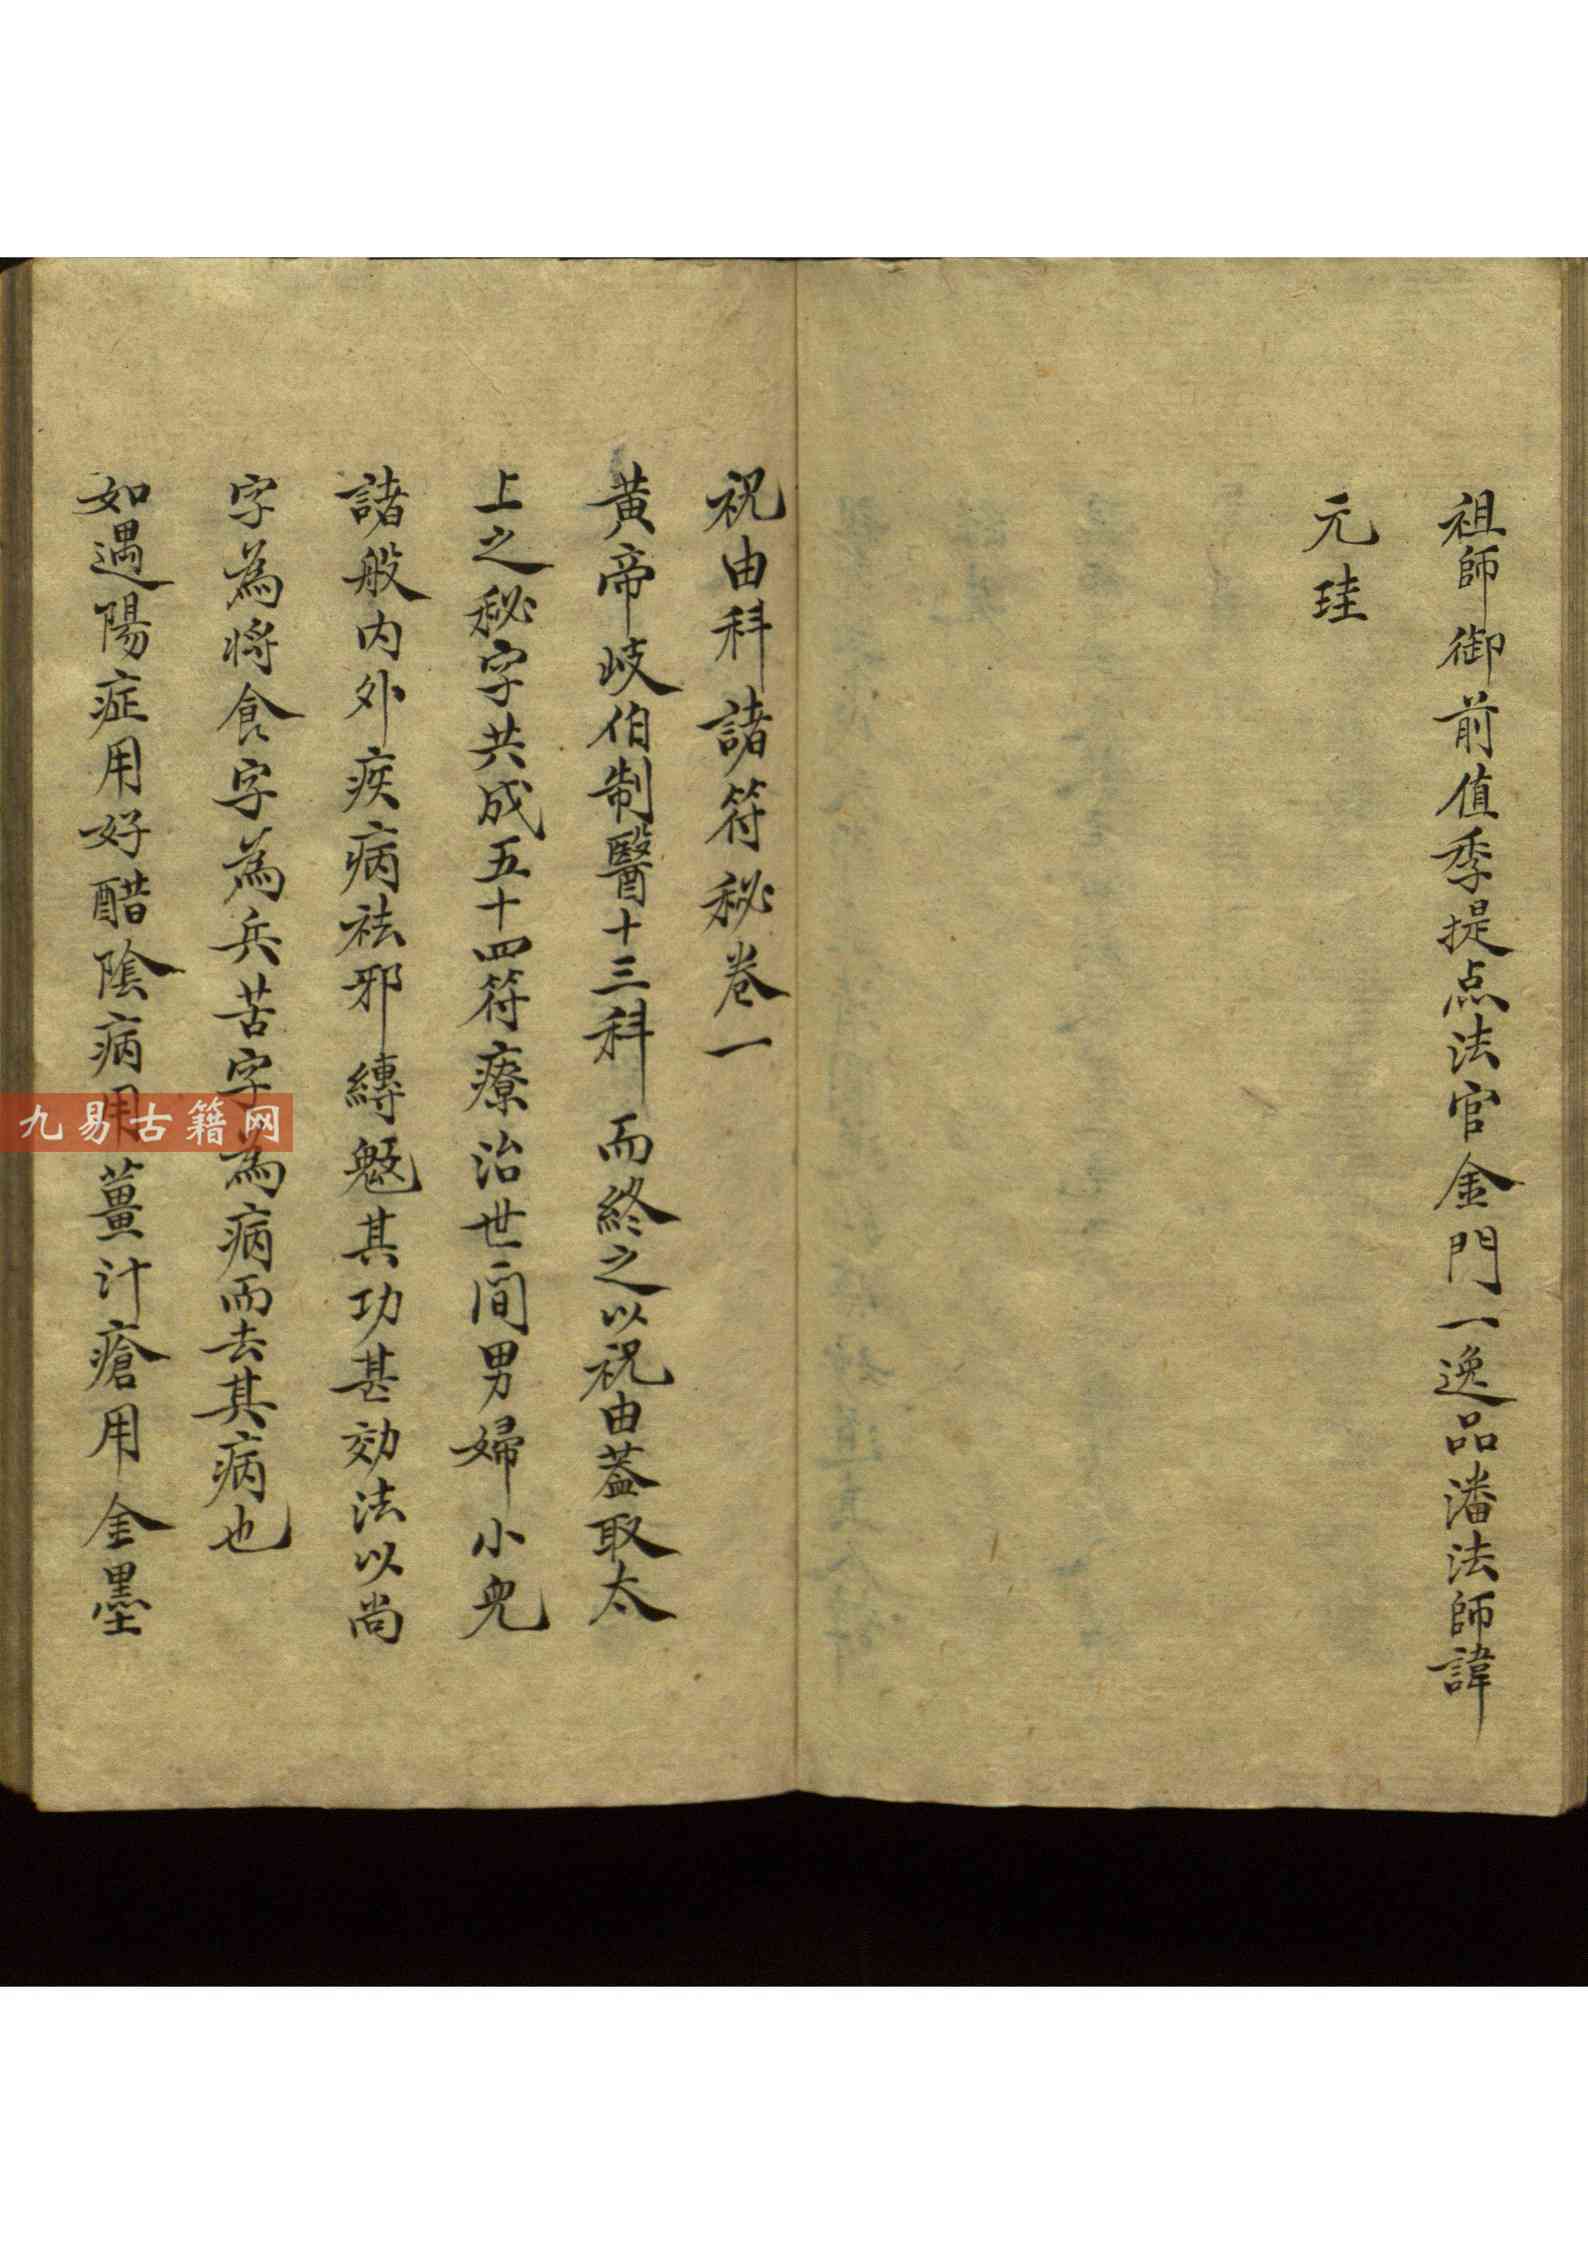 祖師御前值季提点法官金門一逸品潘法師諱
元珪
祝由科諸符秘卷一
黃帝岐伯制醫十三科而終之以祝由蓋取太
上之秘字共成五十四符療治世間男婦小兒
諸般內外疾病祛邪縛魅其功甚効法以尚
字為將食字為兵苦字為病而去其病也
如遇陽症用好醋陰病用薑汁瘡用金墨
九易古籍网